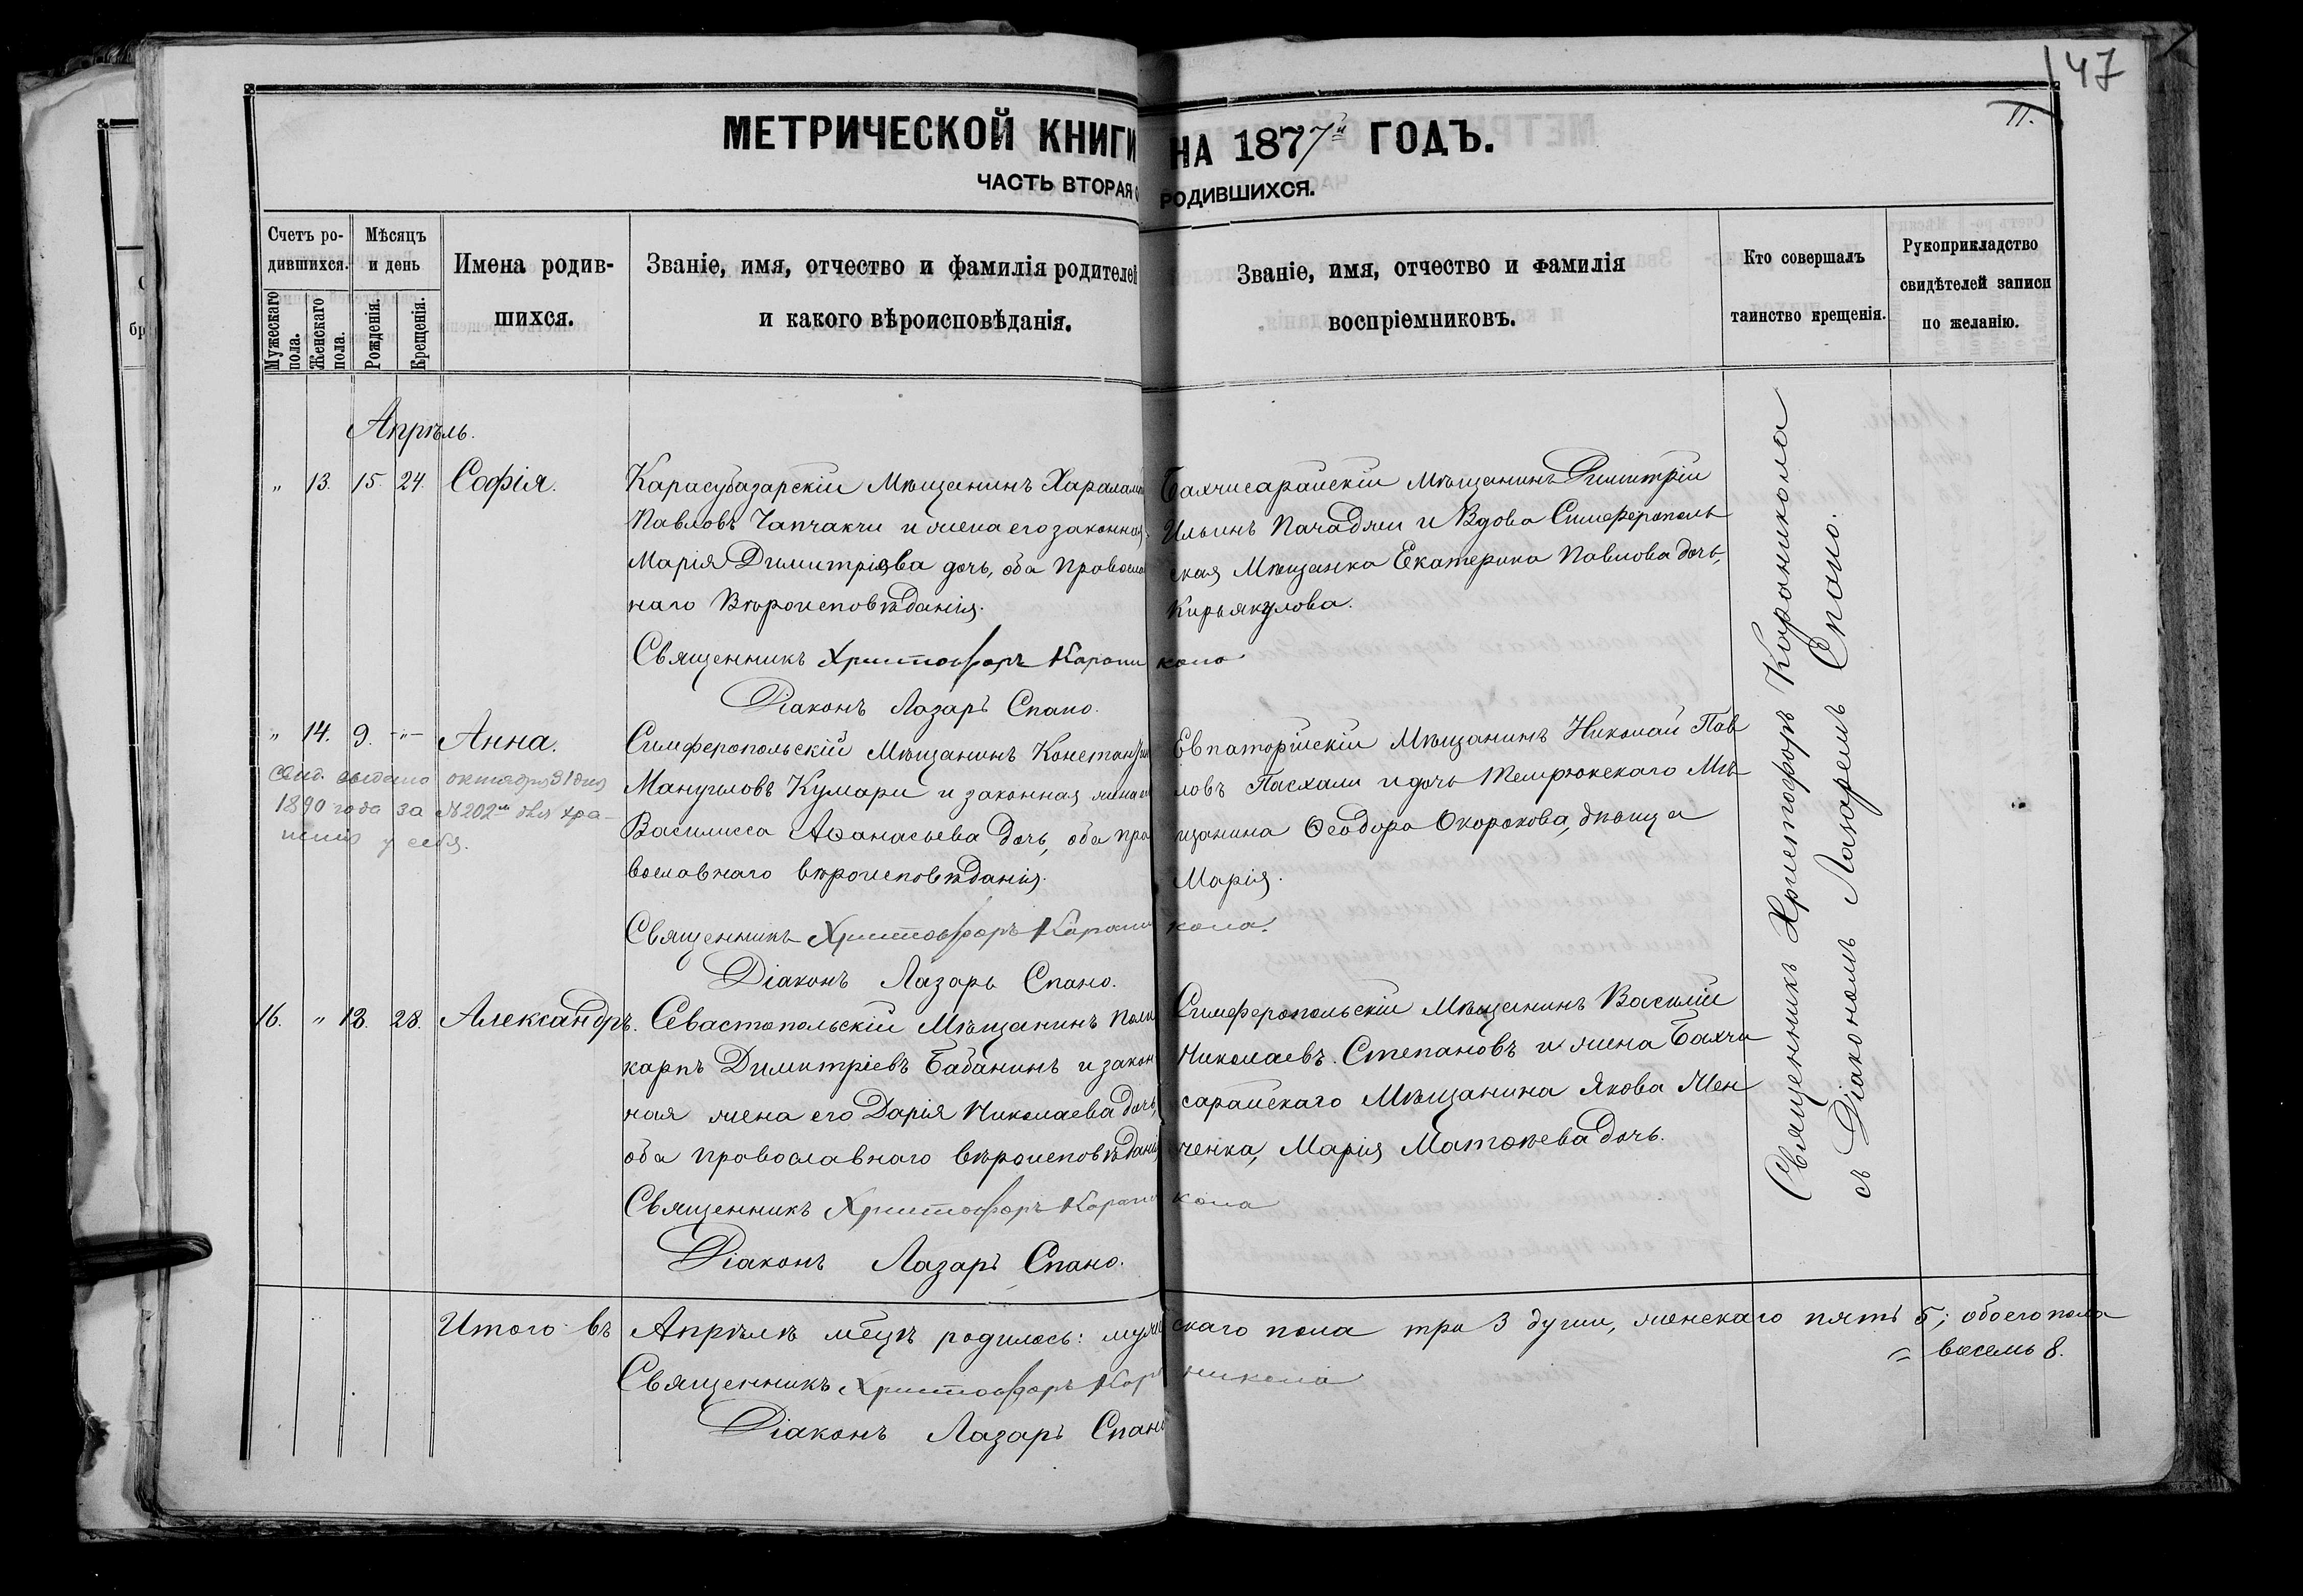 147
11.
МЕТРИЧЕСКОЙ КНИГИ НА 1877й ГОДЪ.
ЧАСТЬ ВТОРАЯ О РОДИВШИХСЯ.
Счетъ ро-
дившихся.
Мужескаго пола.
Женскаго пола.
Мѣсяцъ
и день
Рожденія.
Крещенія.
Имена родив-
шихся.
Званіе, имя, отчество и фамилія родителей
и какого вѣроисповѣданія.
Званіе, имя, отчество и фамилія
воспріемниковъ.
Кто совершалъ
таинство крещенія.
Рукоприкладство
свидѣтелей записи
по желанію.
Апрѣль.
" 13. 15. 24. Софія.
Карасубазарскій Мѣщанинъ Харалам
Павловъ Чапчакчи и жена его законная
Марія Димитріева дочь, оба Правосла
наго Вѣроисповѣданія.
Священникъ Христофоръ Карани
Діаконъ Лазарь Спано.
Бахчисарайскій Мѣщанинъ Димитрій
Ильинъ Пачаджи и Вдова Симферополь
ская Мѣщанка Екатерина Павлова дочь,
Кирьякулова.
кола
" 14. 9. -"- Анна.
Свид. выдано октября 31 дня
1890 года за №202м для хра-
нения у себя.
Симферопольскій Мѣщанинъ Константин
Мануиловъ Кумари и законная жена ег
Василисса Аѳанасьева дочь, оба пра
вославнаго вѣроисповѣданія.
Священникъ Христофоръ Карани
Діаконъ Лазарь Спано.
Евпаторійскій Мѣщанинъ Николай Пав
ловъ Пасхали и дочь Темрюкскаго Мѣ
щанина Ѳеодора Окорокова, дѣвица
Марія.
кола.
16. " 13. 28. Александръ.
Севастопольскій Мѣщанинъ Поли
карпъ Димитріевъ Бабанинъ и закон
ная жена его Дарія Николаева дочь,
оба православнаго вѣроисповѣдані
Священникъ Христофоръ Карани
Діаконъ Лазарь Спано.
Симферопольскій Мѣщанинъ Василій
Николаевъ Степановъ и жена Бахчи
сарайскаго Мѣщанина Якова Мен
ченка, Марія Матѳѣева дочь.
кола
Священникъ Христофоръ Кораникола
съ Діакономъ Лазаремъ Спано.
Итого въ Апрѣлѣ мѣцѣ родилось: мужескаго пола три 3 души, женскаго пять 5; обоего пола
= восемь 8.
Священникъ Христофоръ Кораникола
Діаконъ Лазарь Спано